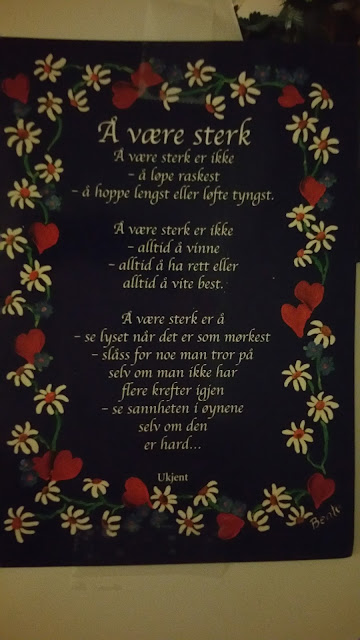 Å være sterk
Å være sterk er ikke
– å løpe raskest
– å hoppe lengst eller løfte tyngst.
Å være sterk er ikke
– alltid å vinne
– alltid å ha rett eller
alltid å vite best.
Å være sterk er å
– se lyset når det er som mørkest
– slåss for noe man tror på
selv om man ikke har
flere krefter igjen
– se sannheten i øynene
selv om den
er hard...
Ukjent